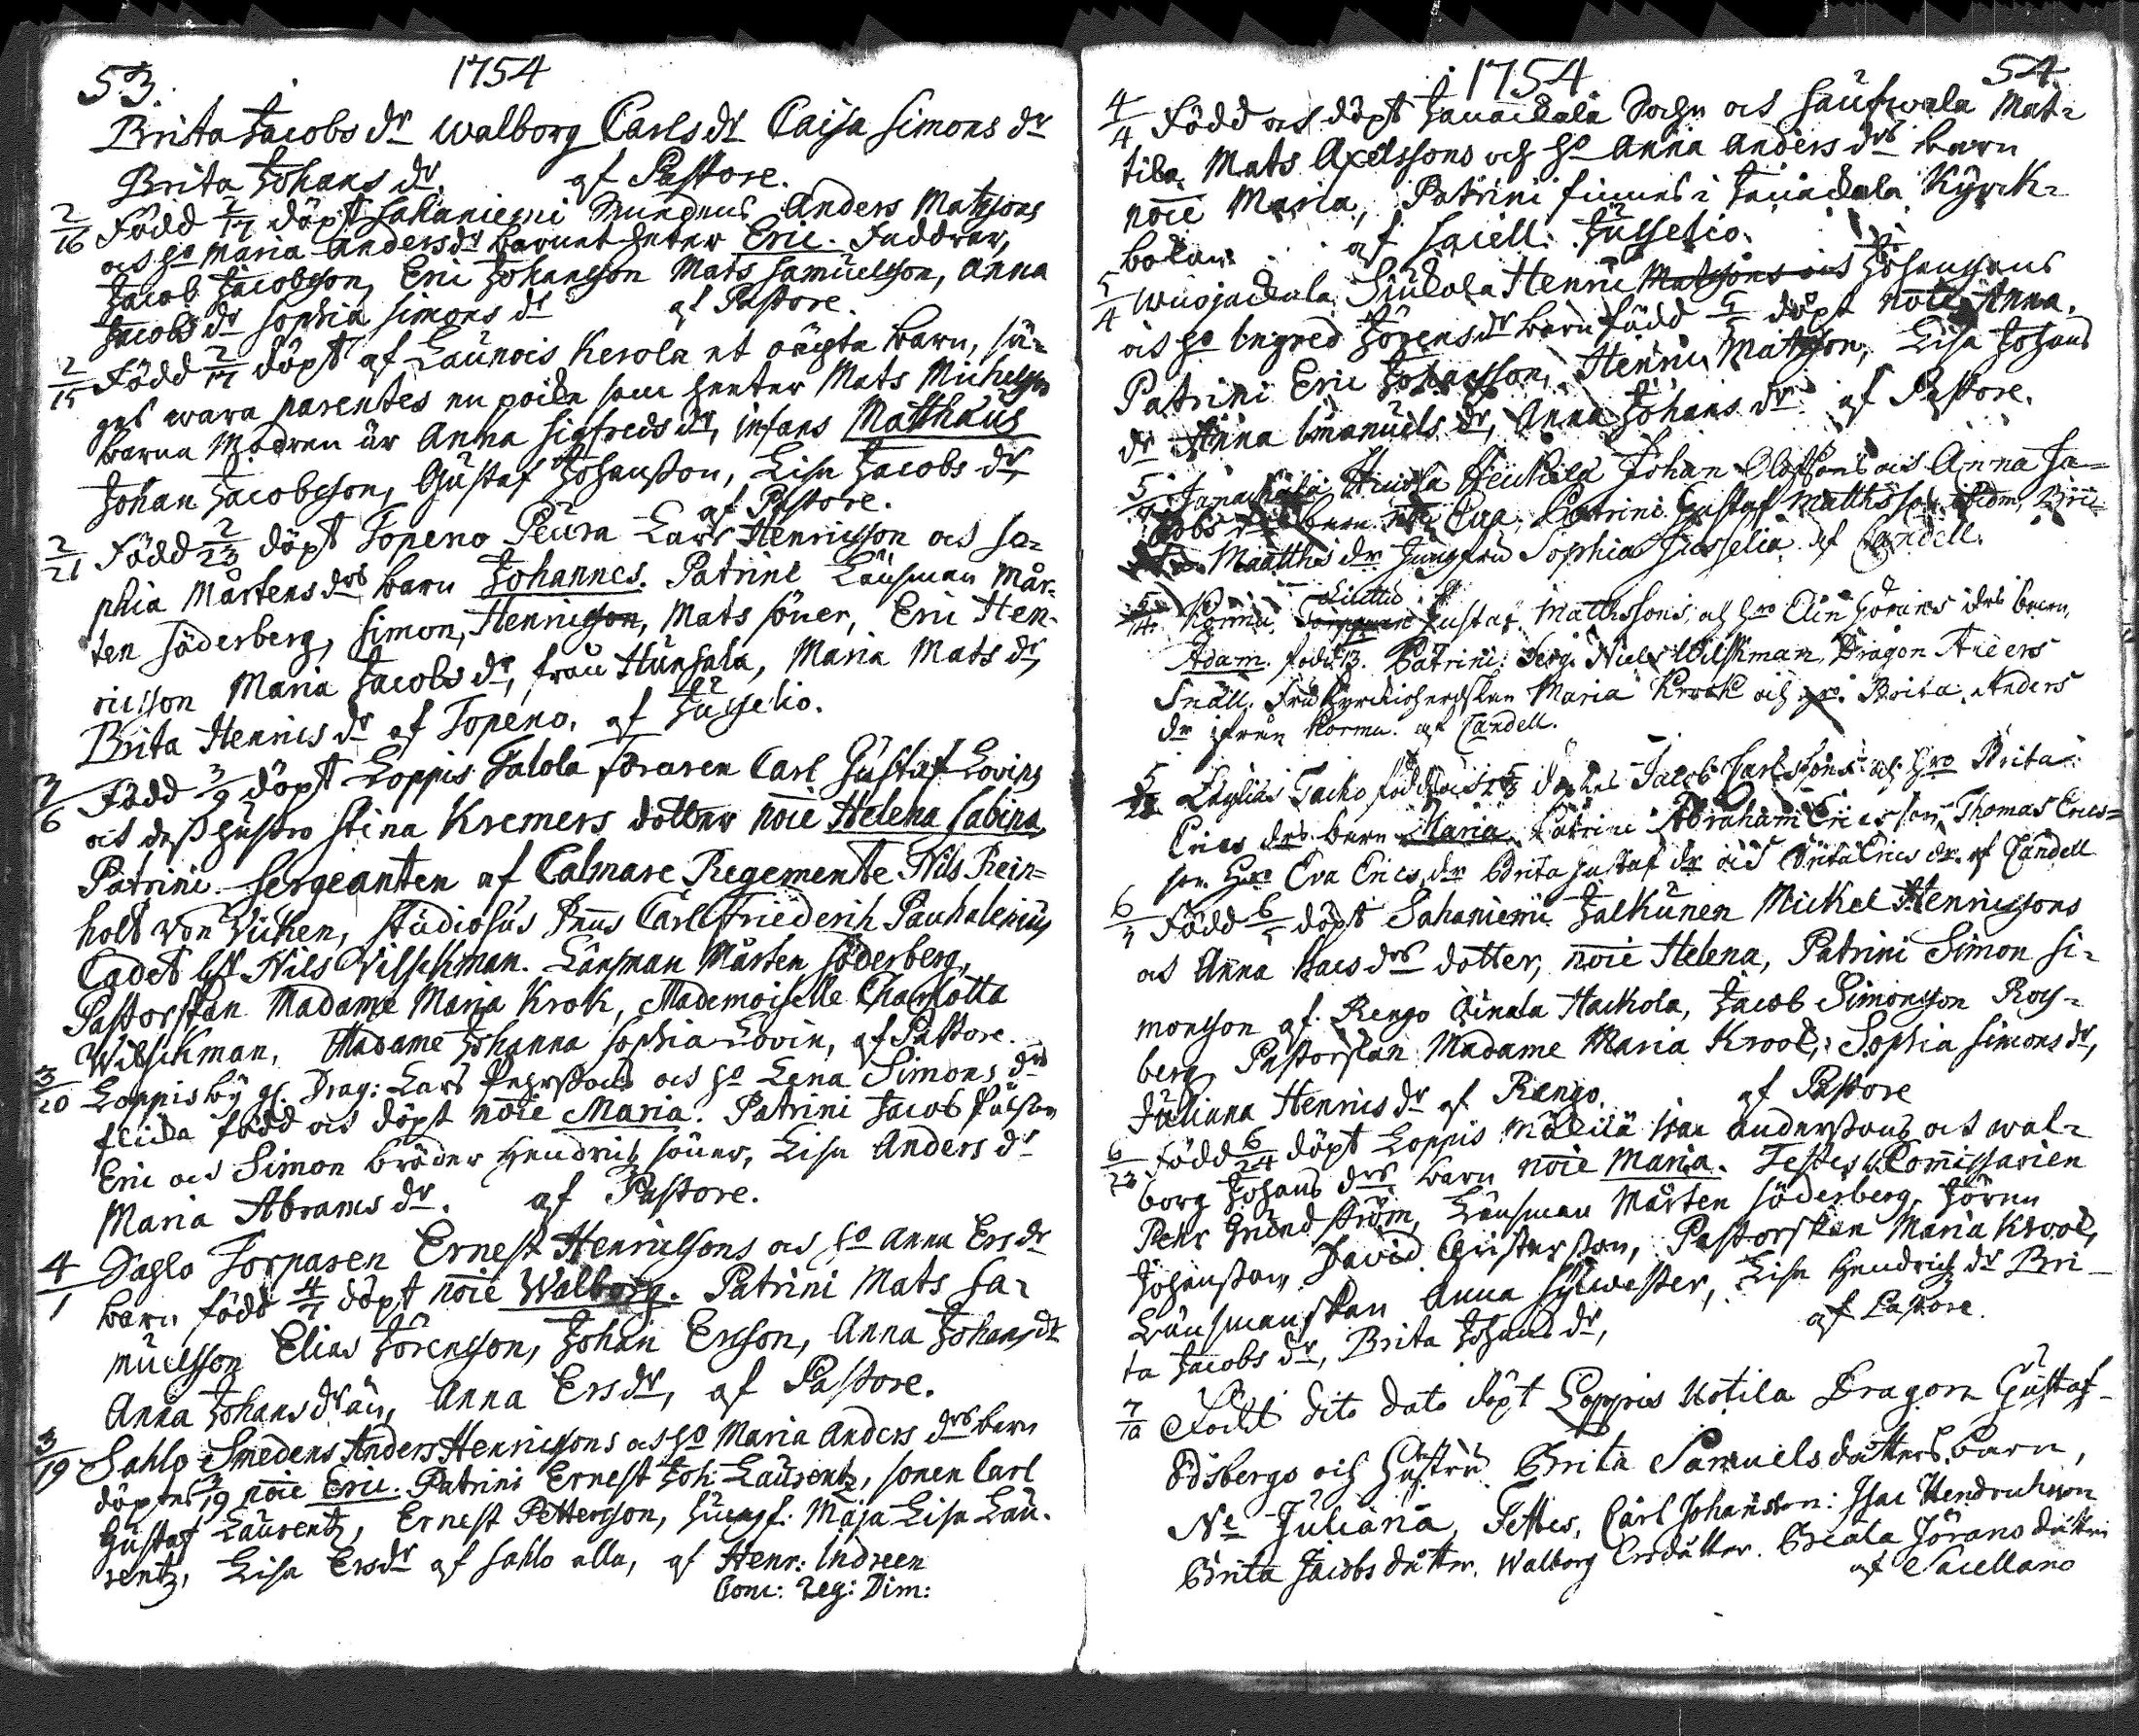 53. 1754
Brita Jacobs dr Walborg Carls dr Caisa Simons dr
Brita Johans dr. af Pastore.
2/16 Född 2/17 döpt Sahaniemi Smedens Anders Matssons
och ho Maria Anders dr barnet heter Eric. Faddrar,
Jacob Jacobsson, Eric Johansson Mats Samuelsson, Anna
Jacobs dr Sophia Simons dr af Pastore.
2/15 Född 2/17 döpt af Launois Kerola et oägta barn, sä-
ges wara parentes en poike som heeter Mats Michelsson
barna Modren är Anna Sigfreds dr, infans Matthaus
Johan Jacobsson, Gustaf Johansson, Lisa Jacobs dr
af Pastore.
2/21 Född 2/23 döpt Topeno Peura Lars Henricsson och So-
phia Mårtens drs barn Johannes. Patrini Länsman Mår-
ten Söderberg, Simon, Henricsson, Mats söner, Eric Hen-
ricsson Maria Jacobs dr, från Hunsala, Maria Mats dr,
Brita Henrics dr af Topeno. af Jusselio.
3/6 Född 3/9 döpt Loppis Talola Carl Gustaf Lovins
och dess hustro Stina Kremers dotter noie Helena Sabina
Patrini Sergeanten af Calmare Regemente Nils Rein=
holt von Vicken, Studiosus Dnus Carl Friederich Pauhalenius
Cadet Nils Wilschman. Länsman Mårten Söderberg,
Pastorskan Madame Maria Krok, Mademoiselle Charlotta
Wilschman, Madame Johanna Sophia Lovin, af Pastore.
3/20 Loppis by gl. Drag: Lars och ho Lena Simons drs
flicka född och döpt noie Maria. Patrini Jacob
Eric och Simon bröder Hendrich söner, Lisa Anders dr
Maria Abrams dr. af Pastore.
4/1 Sahlo Torparen Ernest Henricssons och ho Anna Ers dr
barn född 4/7 döpt noie Walborg. Patrini Mats Sa-
muelsson Elias Jörensson, Johan Ersson, Anna Johans dr
Anna Johans dr Anna Ers dr, af Pastore.
3/19 Sahlo Smedens Anders Henricssons och ho Maria Anders drs barn
döptes 3/19 noie Eric. Patrini Ernest Joh: Laurentz, sonen Carl
Gustaf Laurentz, Ernest Pettersson, Jungf: Maja Lisa Lau-
rentz, Lisa Ers dr af Sahlo alla, af Henr: Indreen
Conc: Reg: Dim:
1754 54
4/4 Född och döpt Janackala Sochn och Saufwala Mat-
tila Mats Axelssons och ho Anna Anders drs barn
noie Maria, Patrini finnes i Janackala Kyrck-
boken af Sacell: Jusselio.
5/4 Wuojackala Siukola Henric Matssons och Johanssons
och ho Ingred Jörens dr barn född 5/5 döpt noie Anna.
Patrini Eric Johansson, Henric Matsson, Lisa Johans
dr Anna Emanuels dr, Anna Johans dr af Pastore.
Janackala Johan Olofssons och Anna Ja=
cobs barn noie Eva. Patrini Gustaf Matthsson Bri-
Matths dr Jungfru Sophia Jusselia. af Candell.
Kormu. Gustaf Matthssons, och hro Elin drs barn,
Adam. Patrini: Serg: Niels Wilskman, Dragon
Snäll. Maria Krook och Brita Anders
dr ifrån Kormu. af Candell.
Läyliäs Tacko född och döptes Jacob Carlssons och Hro Brita
Erics drs barn Maria. Patrini Abraham Ericsson, Thomas Erics=
son Hro Eva Erics dr Brita Gustaf dr och Brita Erics dr. af Candell
6/4 Född 6/5 döpt Sahaniemi Jalkunen Mickel Henricssons
och Anna drs dotter, noie Helena, Patrini Simon Si-
monsson af. Rengo Hackola, Jacob Simonsson Roy-
berg Pastorskan Madame Maria Krook, Sophia Simons dr,
Juliana Henrics dr af Rengo. af Pastore
6/23 Född 6/24 döpt Loppis Isac Anderssons och Wal-
borg Johans drs barn noie Maria. Testes Comissarien
Pehr Grundström, Länsman Mårten Söderberg, Jören
Johansson, David Gustafsson, Pastorskan Maria Krook,
Länsmanskan Anna Sylwester, Lisa Hendrich dr Bri-
ta Jacobs dr, Brita Johans dr, af Pastore.
7/10 Född dito dato döpt Loppis Uotila Dragon Gustaf
Ödsbergs och Hustru Brita Samuels dåtters barn,
Ne Juliana, Testes, Carl Johansson: Isac Hendrichsson
Brita Jacobs dåtter. Walborg Ersdåtter. Beata Jörans dåtter
af Sacellano